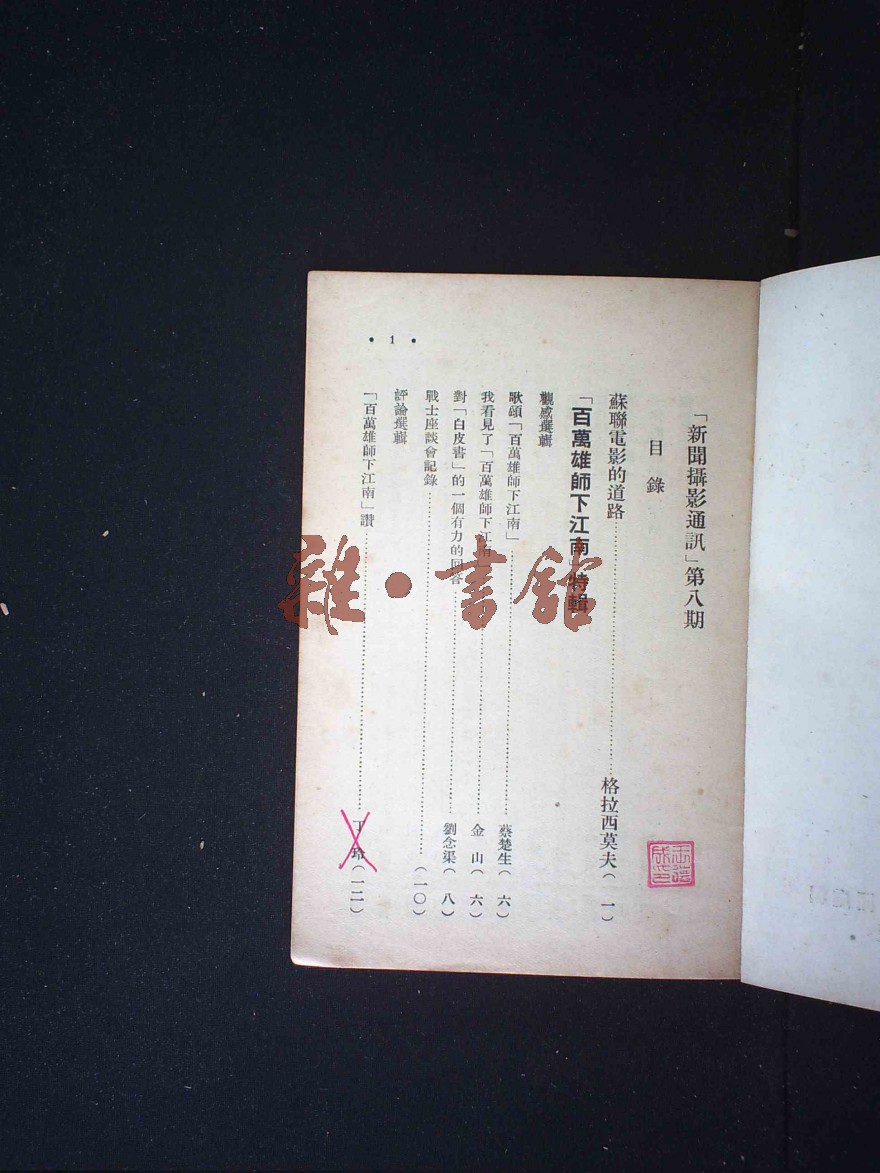 「新聞攝影通訊」第八期
目錄
蘇聯電影的道路……格拉西莫夫（一）
「百萬雄師下江南」特輯
觀感選輯
歌頌「百萬雄師下江南」……蔡楚生（六）
我看見了「百萬雄師下江南」……金山（六）
對「白皮書」的一個有力的回答……劉念渠（八）
戰士座談會記錄……（一〇）
評論選輯
「百萬雄師下江南」讚……丁玲（一二）
• 1 •
雜·書館